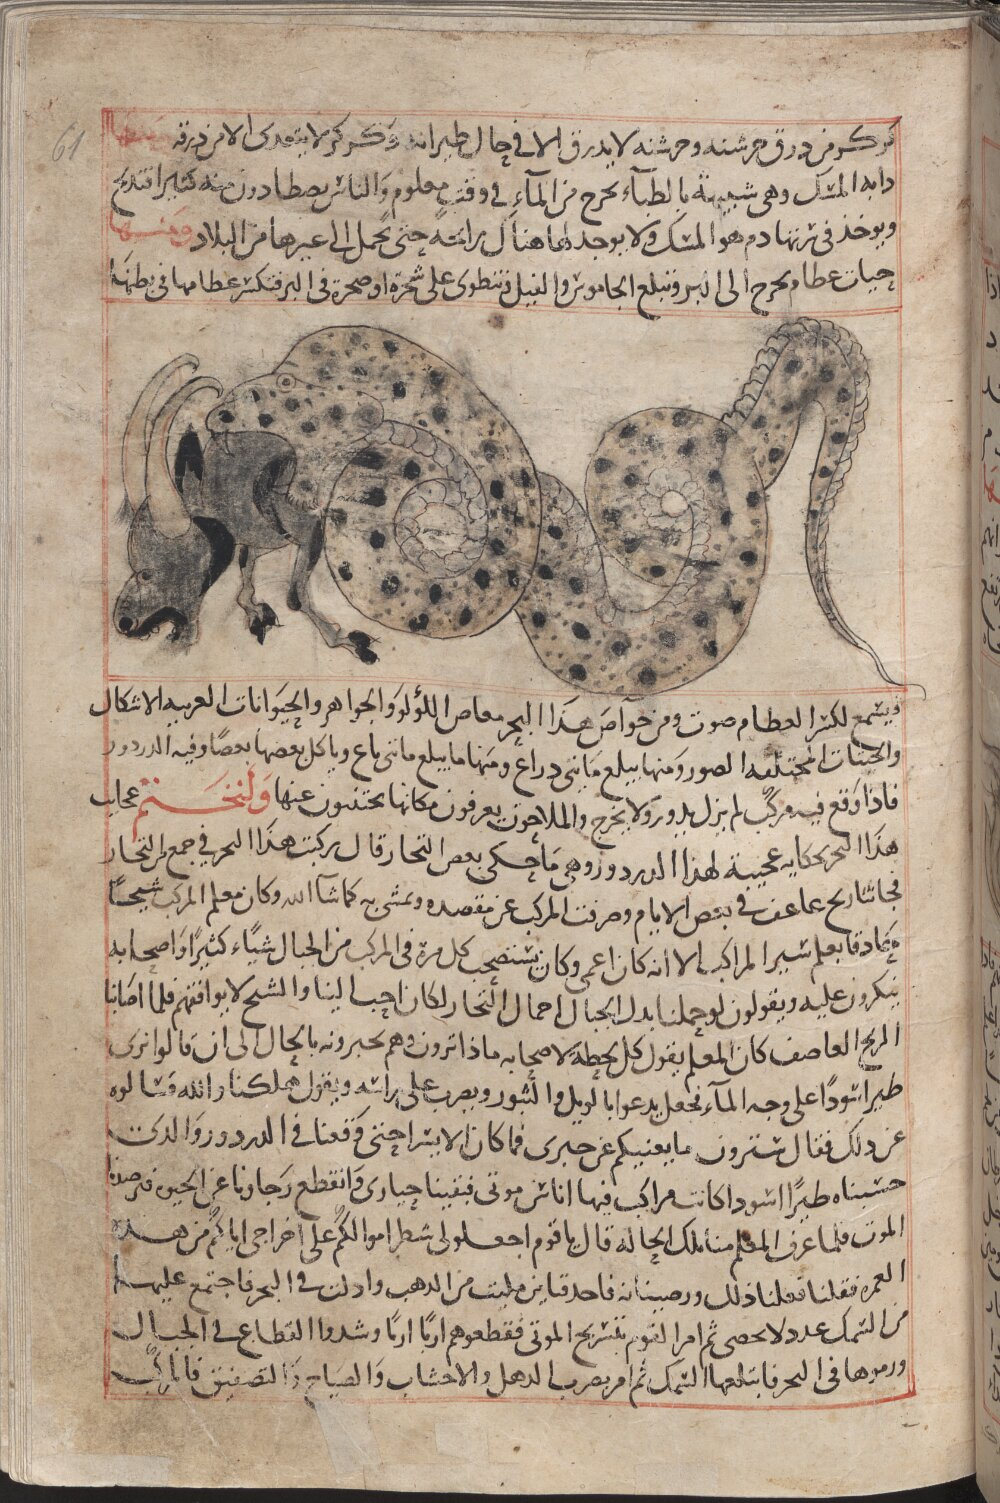 61
كركر من ذرق خرشنه وخرشنه لا يذرق الا في حال طيرانه وكركر لا يتغدى الا من ذرقه ومنها
دابة المسك وهى شبيهة بالظبآء تخرج من المآء في وقت معلوم والناس يصطادون منه كثيرا فتذبح
ويوخذ في سرتها دم هو المسك ولا يوجد لها هناك رائحة حتى تحمل الى غيرها من البلاد ومنها
حيات عظام تخرج الى البر وتبتلع الجاموس والفيل وتنطوى على شجرة او صخرة في البر فتكسر عظامها في بطنها
ويسمع لكسر العظام صوت ومن خواص هذا البحر مغاص اللؤلؤ والجواهر والحيوانات الغريبه الاشكال
والحيتان المختلفه الصور ومنها يبلغ مايتى ذراع ومنها ما يبلغ مايتى باع وياكل بعضها بعضا وفيه الدردور
فاذا وقع فيه مركب لم يزل يدور ولا يخرج والملاحون يعرفون مكانها يجتنبون عنها ولنختم عجايب
هذا البحر بحكايه عجيبة لهذا الدردور وهى ما حكى بعض التجار قال ركبت هذا البحر في جمع من التجار
فجاتنا ريح عاصف في بعض الايام وصرفت المركب عن مقصده وتمشى به كما شآ الله وكان معلم المركب شيخا
حاذقا بعلم سير المراكب الا انه كان اعمى وكان يستصحب كل مرة في المركب من الحبال شيًاء كثيرًا واصحابه
ينكرون عليه ويقولون لو حملنا بدل الحبال احمال التجار لكان احب الينا والشيخ لا يوافقهم فلما اصابنا
الريح العاصف كان المعلم يقول كل لحظة لاصحابه ماذا ترون وهم يخبرونه بالحال الى ان قالوا نرى
طيرا اسودًا على وجه المآء فجعل يدعوا بالويل والثبور ويضرب على راسه ويقول هلكنا والله فسالوه
عن ذلك فقال سترون ما يغنيكم عن خبرى فما كان الا يسيرا حتى وقعنا في الدردور والذى
حسبناه طيرًا اسودا كانت مراكب فيها اناس موتى فبقينا حيارى وانقطع رجاونا عن الحيوة
الموت فلما عرف المعلم منا تلك الحالة قال يا قوم اجعلوا لى شطر اموالكم على اخراجى اياكم من هذه
الغمره فقلنا قد فعلنا ذلك ورضينا به فاخذ قنانى مليت من الدهن وادلت في البحر فاجتمع عليها
من السمك عدد لا يحصى ثم امر القوم بتشريح الموتى فقطعوهم اربًا اربًا وشدوا القطاع في الحبال
ورموها في البحر فابتلعها السمك ثم امر بضرب الدهل والاخشاب والصياح والتصفيق